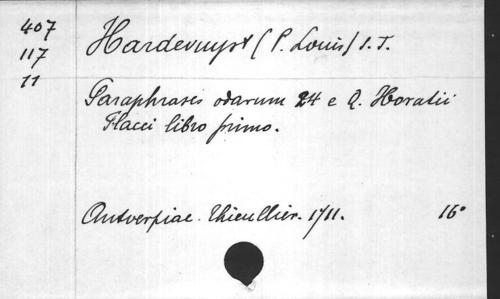 407
117
11
Hardevuyst (P. Louis) S. T.
Paraphrases odarum 24 e Q. Horatii
Flacci libro primo.
Antverpiae. Thieullier. 1711. 16°